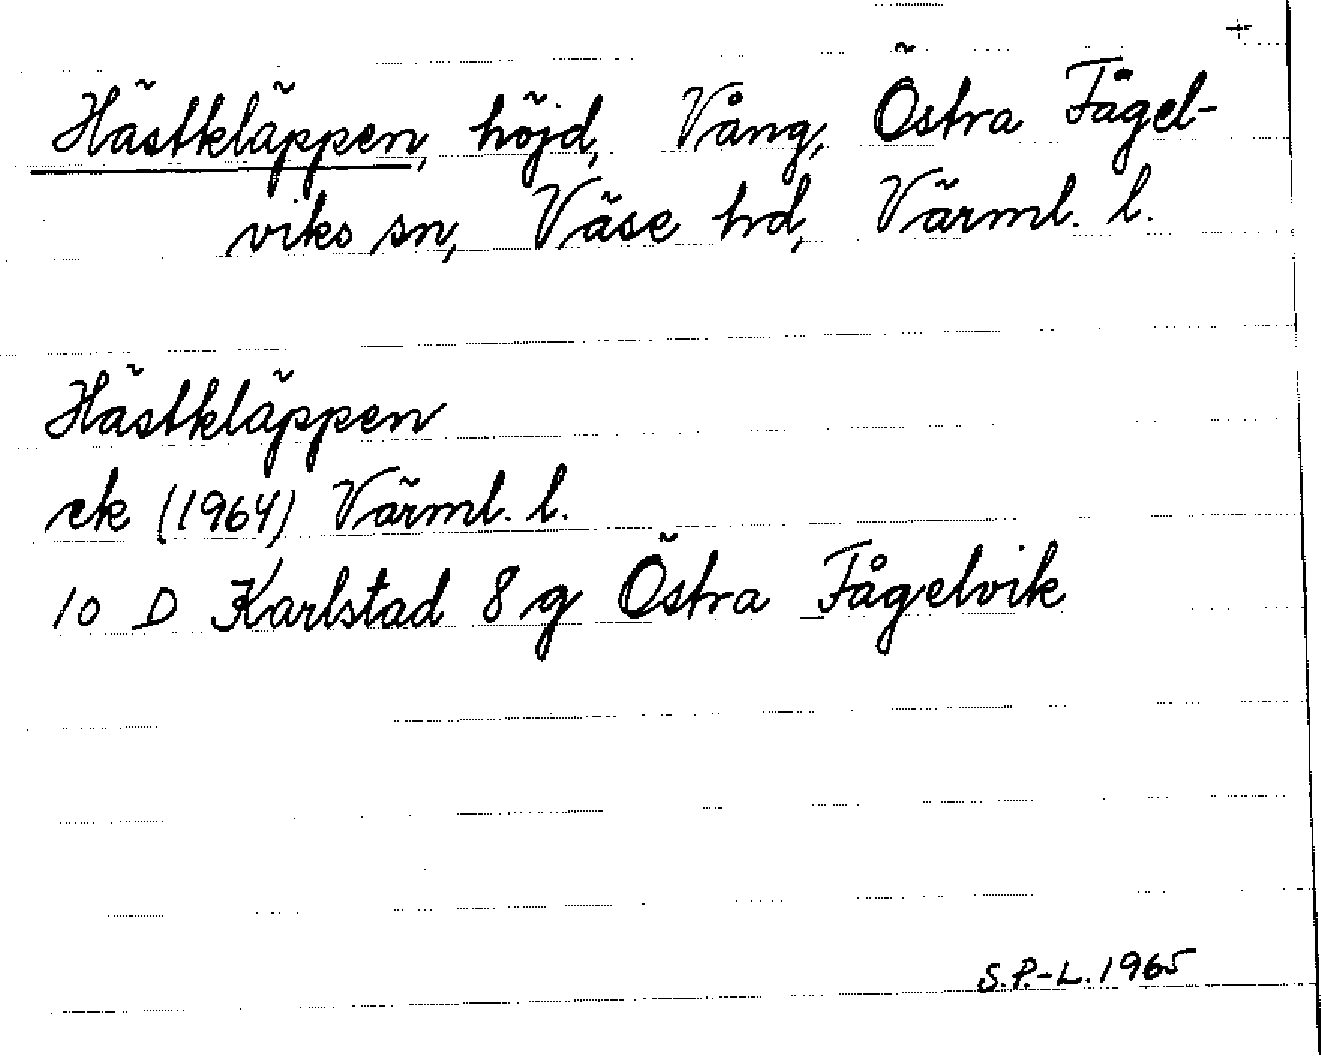 +
Hästkläppen, höjd, Vång, Östra Fågel-
viks sn, Väse hd, Värml. l.
Hästkläppen
ek (1964) Värml. l.
10 D Karlstad 8 g Östra Fågelvik
S.P.-L. 1965